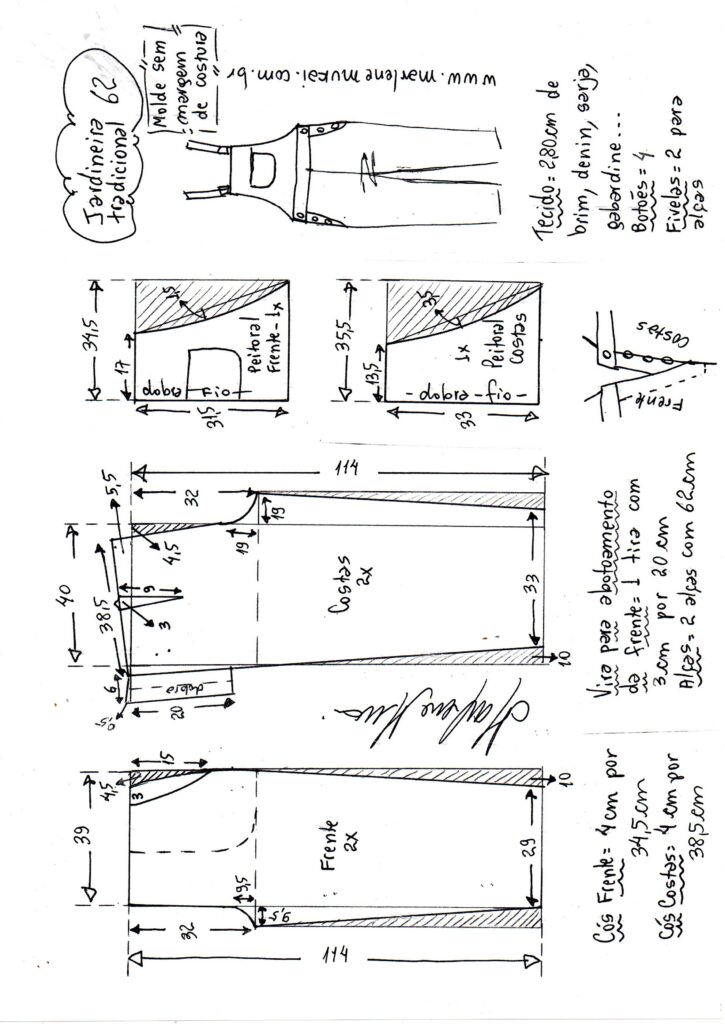 Jardineira 62
tradicional
Molde sem
margem
de costura
www.marlenemukai.com.br
Tecido = 2,80cm de
brim, denin, sarja,
gabardine...
Botões = 4
Fivelas = 2 para
alças
34,5
17
1,5
Peitoral
Frente - 1x
dobra
fio
31,5
35,5
13,5
3,5
1x
Peitoral
Costas
dobra
fio
33
Costas
Frente
114
32
5,5
19
19
4,5
40
38,5
9
3
Costas
2x
33
10
6
dobra
0,5
20
Vira para abotoamento
da frente = 1 tira com
3 cm por 20 cm
Alças = 2 alças com 62cm
15
4,5
3
39
10
Frente
2x
29
9,5
9,5
32
114
Cós Frente = 4 cm por
34,5 cm
Cós Costas = 4 cm por
38,5 cm